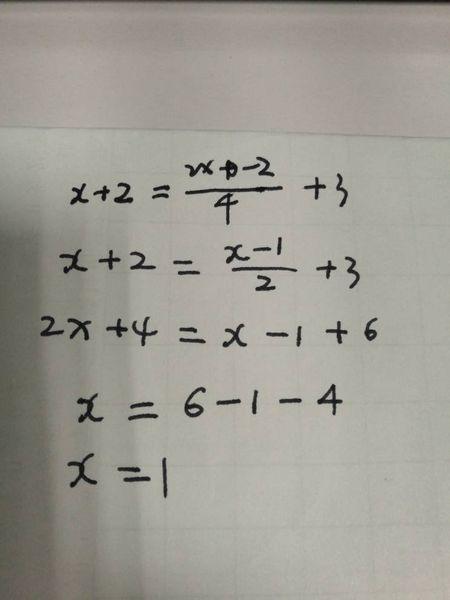 x+2 = (2x-2)/4 +3
x+2 = (x-1)/2 +3
2x+4 = x-1+6
x = 6-1-4
x =1